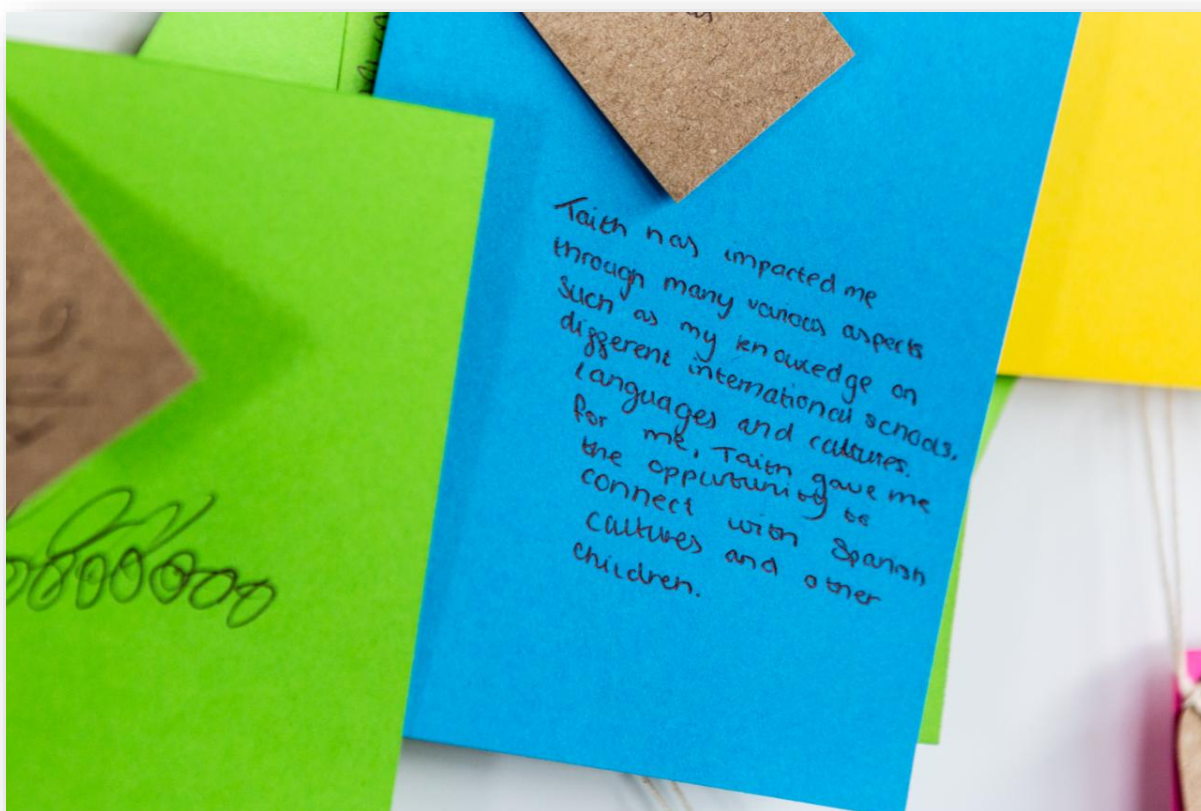 Taith has impacted me
through many various aspects
such as my knowledge on
different international schools.
languages and cultures.
for me, Taith gave me
the oppurtunity to
connect with Spanish
cultures and other
children.